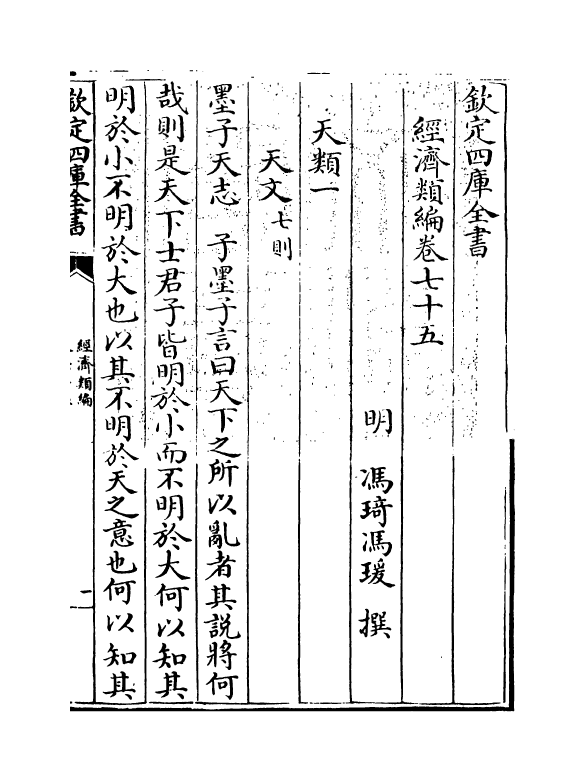 欽定四庫全書
經濟類編卷七十五
明 馮琦馮瑗 撰
天類一
天文七則
墨子天志 子墨子言曰天下之所以亂者其說將何
哉則是天下士君子皆明於小而不明於大何以知其
明於小不明於大也以其不明於天之意也何以知其
欽定四庫全書
經濟類編